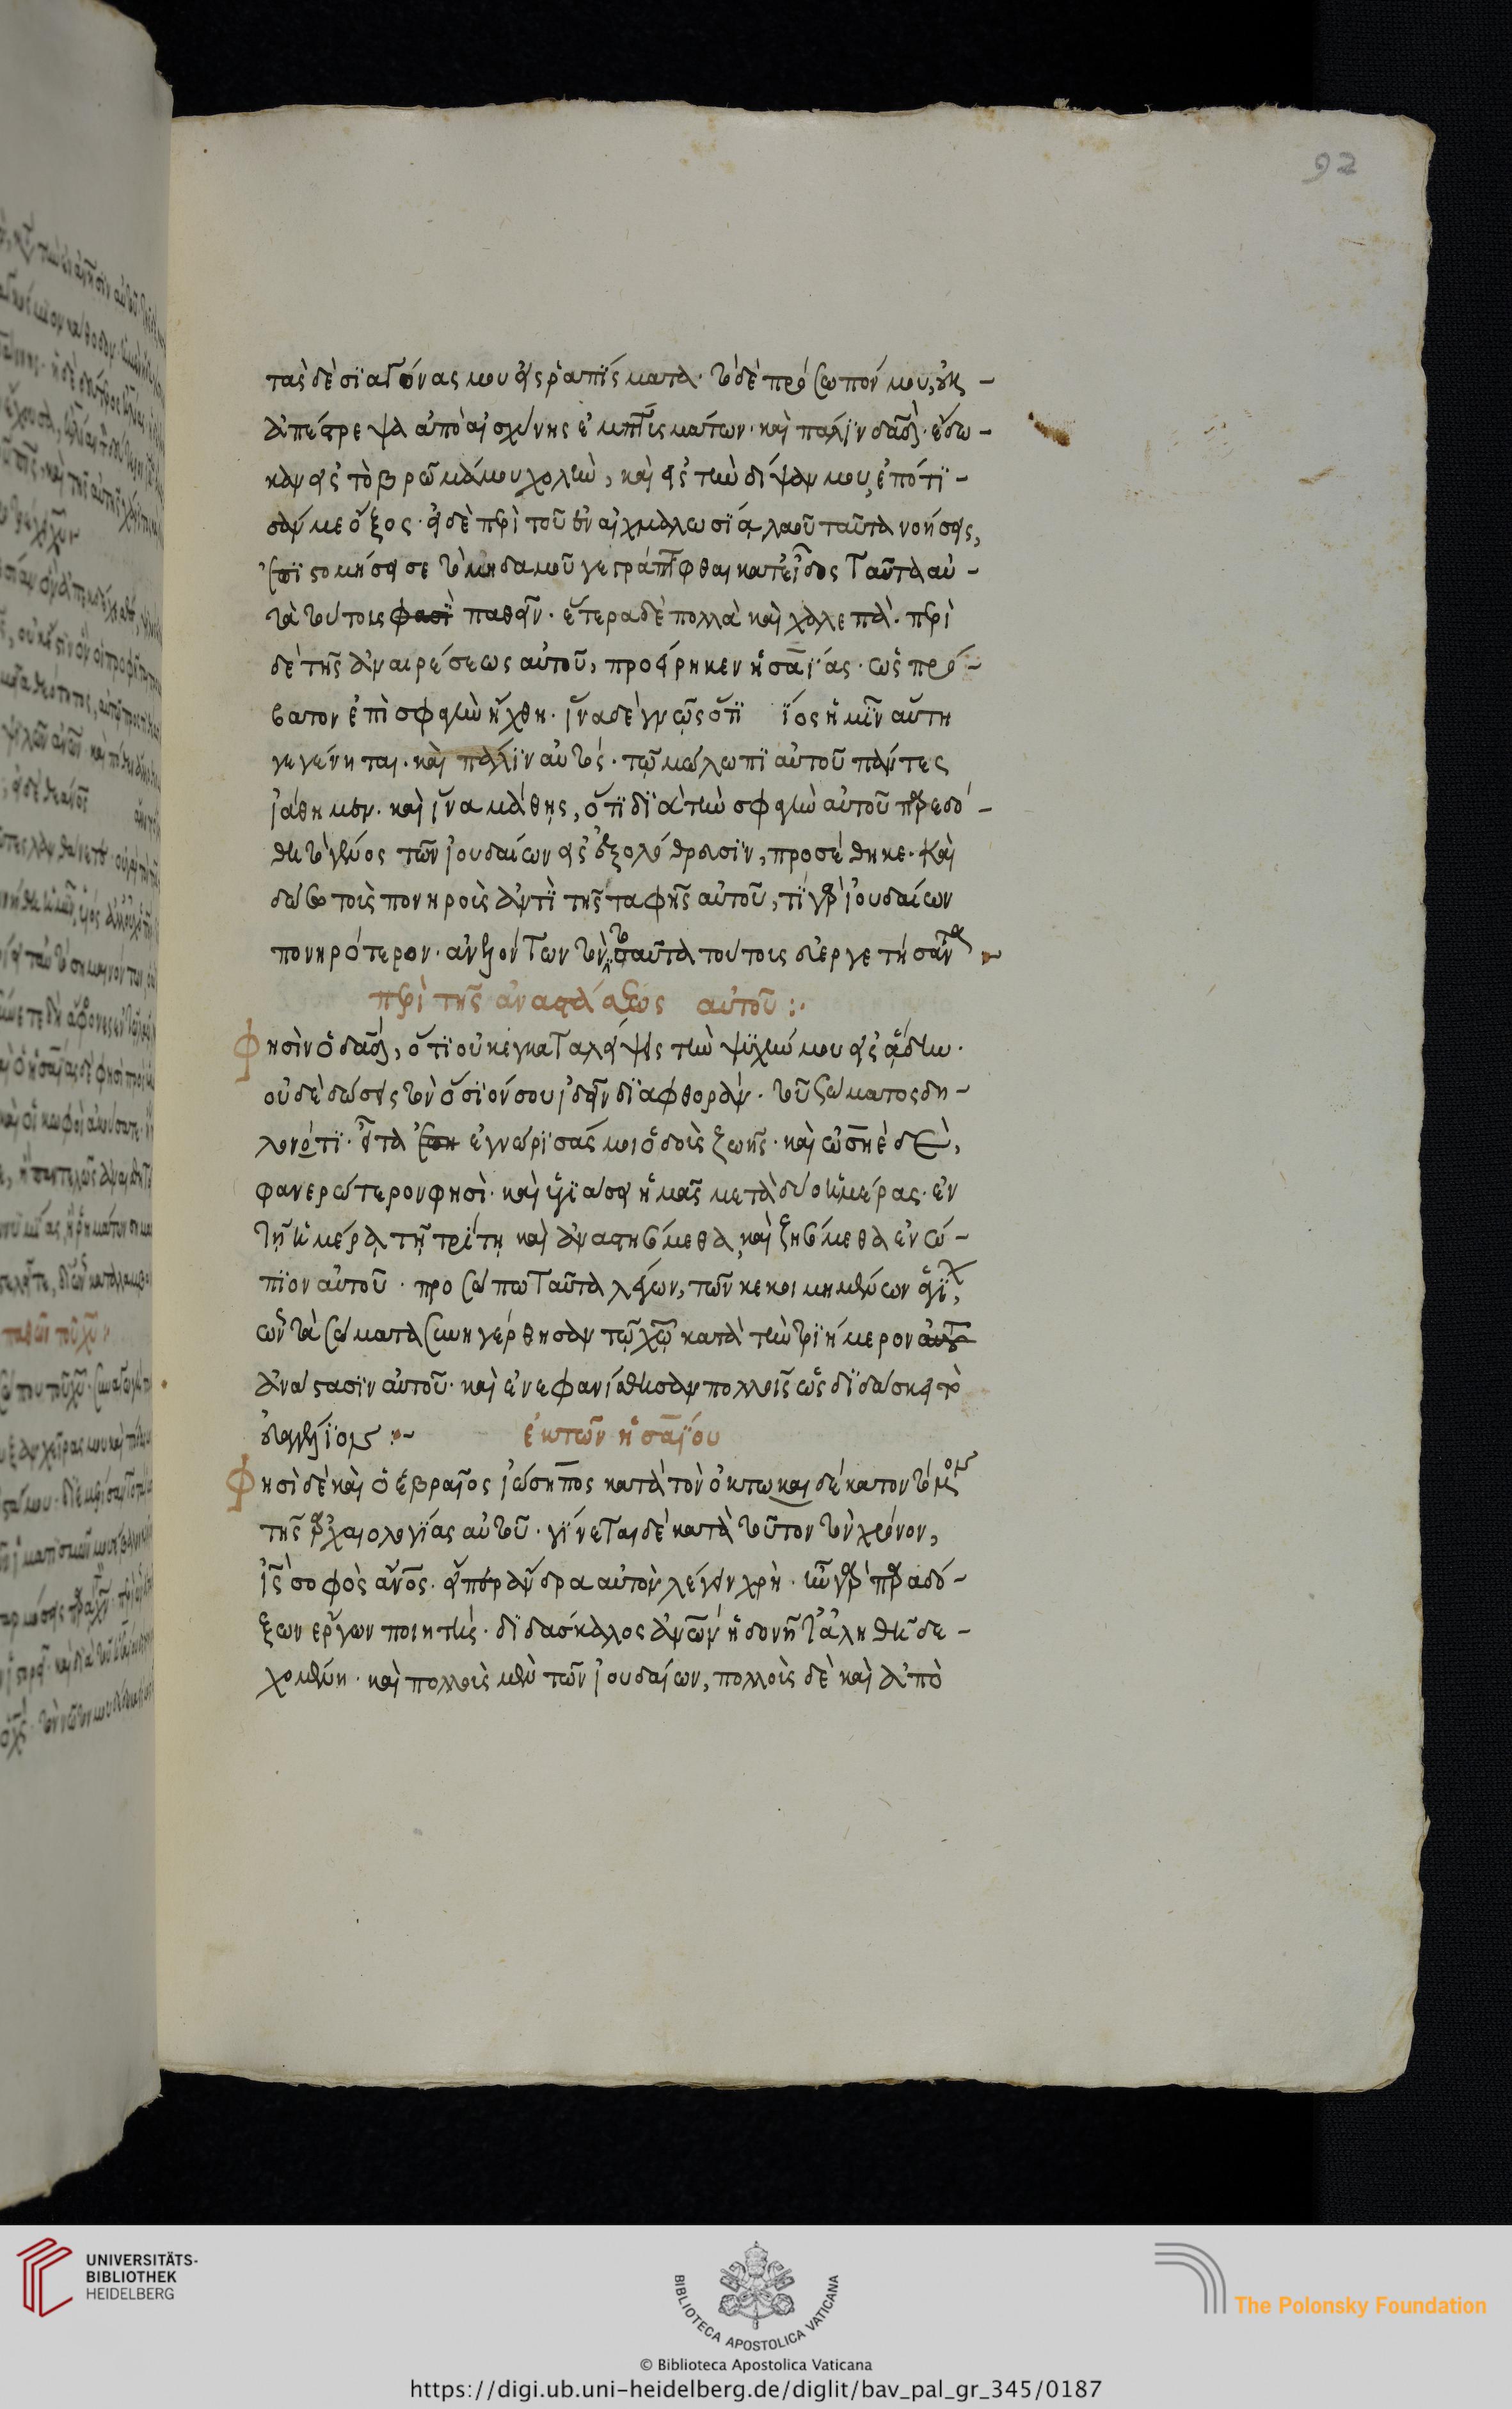 92
τὰς δὲ σϊαγόνας μου εἰς ῥαπίσματα· τὸ δὲ πρόσωπόν μου, οὐκ -
ἀπέστρεψα ἀπὸ αἰσχύνης ἐμπτισμάτων· καὶ πάλιν δᾱδ· ἔδω -
καν εἰς τὸ βρῶμά μου χολὴν, καὶ εἰς τὴν δίψαν μου, ἐπότϊ -
σάν με ὄξος· εἰ δὲ περὶ τοῦ ἐν αἰχμαλωσίᾳ λαοῦ ταῦτα νοήσεις,
τὰ τούτοις φασὶ παθεῖν· ἕτερα δὲ πολλὰ καὶ χαλεπὰ· περὶ
δὲ τῆς ἀναιρέσεως αὐτοῦ, προείρηκεν ἡσαΐας· ὡς πρό -
βατον ἐπὶ σφαγὴν ἤχθη· ἵνα δὲ γνῷς ὅτι ϊος ἡμῖν αὕτη
γεγένηται· καὶ πάλιν αὐτός· τῷ μώλωπι αὐτοῦ πάντες
ἰάθημεν· καὶ ἵνα μάθῃς, ὅτι διὰ τὴν σφαγὴν αὐτοῦ παρεδό -
θη τὸ γένος τῶν ἰουδαίων εἰς ἐξολόθρευσιν, προσέθηκε· καὶ
δώσω τοὺς πονηροὺς ἀντὶ τῆς ταφῆς αὐτοῦ, τί γὰρ ἰουδαίων
πονηρότερον· ἀνελόντων τὸν τοσαῦτα τούτοις εὐεργετήσαντα
περὶ τῆς ἀναστάσεως αὐτοῦ :·
Φησὶν ὁ δᾱδ, ὅτι οὐκ ἐγκαταλείψεις τὴν ψυχήν μου εἰς ᾅδην·
οὐδὲ δώσεις τὸν ὅσιόν σου ἰδεῖν διαφθοράν· τοῦ σώματος δη -
λονότι· εἶτα ἐγνώρισάς μοι ὁδοὺς ζωῆς· καὶ ὠσηὲ δὲ,
φανερώτερον φησὶ· καὶ ὑγιάσει ἡμᾶς μετὰ δύο ἡμέρας· ἐν
τῇ ἡμέρᾳ τῇ τρίτῃ καὶ ἀναστησόμεθα, καὶ ζησόμεθα ἐνώ -
πιον αὐτοῦ· προσώπω ταῦτα λέγων, τῶν κεκοιμημένων ἁγί,
ὧν τὰ σώματα συνηγέρθησαν τῷ χῷ κατὰ τὴν τριήμερον αὐτοῦ
ἀνάστασιν αὐτοῦ· καὶ ἐνεφανίσθησαν πολλοῖς ὡς διδάσκει τὸ
εὐαγγέλιον :~ ἐκ τῶν ἡσαΐου
Φησὶ δὲ καὶ ὁ ἑβραῖος ἰώσηπος κατὰ τὸν ὀκτωκαιδέκατον τόμον
τῆς ἀρχαιολογίας αὐτοῦ· γίνεται δὲ κατὰ τοῦτον τὸν χρόνον,
ἰς σοφὸς ἄνος· εἴπερ ἄνδρα αὐτὸν λέγειν χρὴ· ἦν γὰρ παραδό -
ξων ἔργων ποιητής· διδάσκαλος ἀνῶν ἡδονῇ τἀληθῆ δε -
χομένη· καὶ πολλοὺς μὲν τῶν ἰουδαίων, πολλοὺς δὲ καὶ ἀπὸ
UNIVERSITÄTS-
BIBLIOTHEK
HEIDELBERG
BIBLIOTECA APOSTOLICA VATICANA
The Polonsky Foundation
© Biblioteca Apostolica Vaticana
https://digi.ub.uni-heidelberg.de/diglit/bav_pal_gr_345/0187